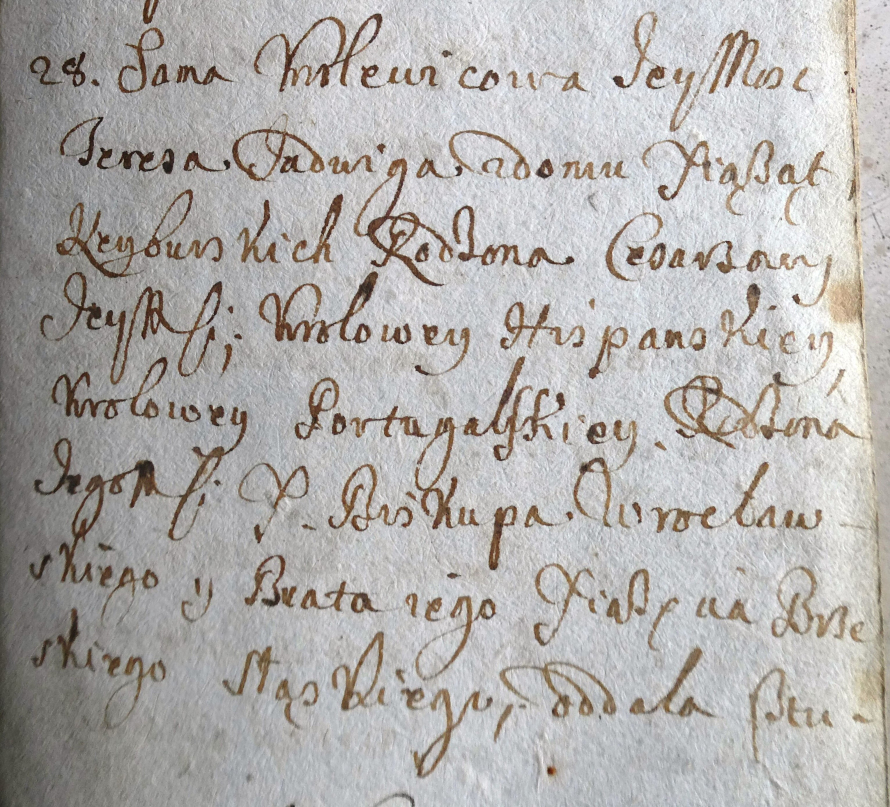 28. Sama Krolewicowa JeyMosc
Teresa Jadwiga z domu Xiązat
Neyburskich Rodzona Cesarzowy
JeyMsci; Krolowey Hispanskiey,
Krolowey Portugalskiey. Rodzona
JegoMsci X. Biskupa Wrocław-
skiego y Brata iego Xiązęcia Brze
skiego